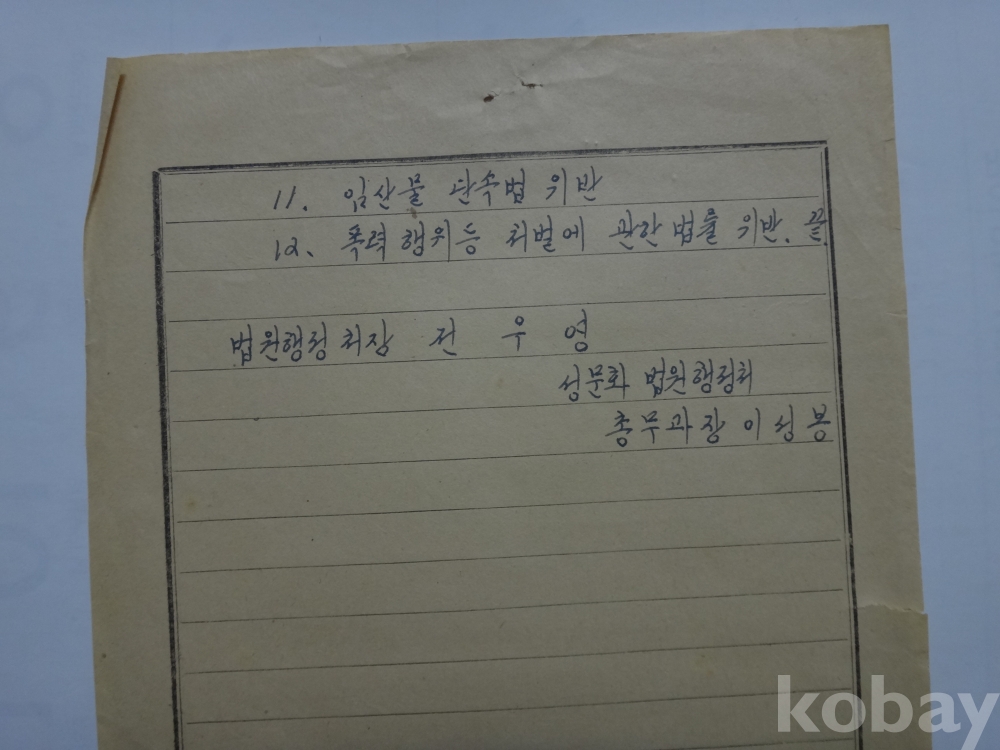 11. 임산물 단속법 위반
12. 폭력행위등 처벌에 관한 법률 위반. 끝.
법원행정처장 전 우 영
성문화 법원행정처
총무과장 이성봉
kobay